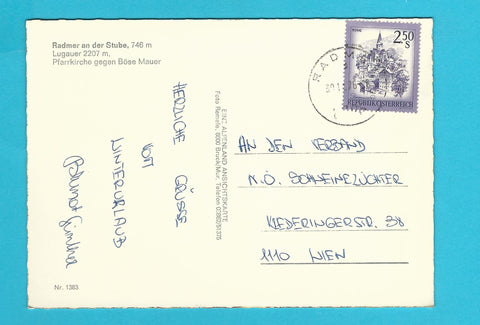 Radmer an der Stube, 746 m
Lugauer 2207 m,
Pfarrkirche gegen Böse Mauer
HERZLICHE GRÜSSE
VOM
WINTERURLAUB
EINE ALPENLAND ANSICHTSKARTE
Foto Ramele, 8600 Bruck/Mur, Telefon
2.50
S
REPUBLIK ÖSTERREICH
RADM
AN DEN VERBAND
N.Ö. SCHWEINEZÜCHTER
KLEDERINGERSTR. 38
1110 WIEN
Nr. 1383